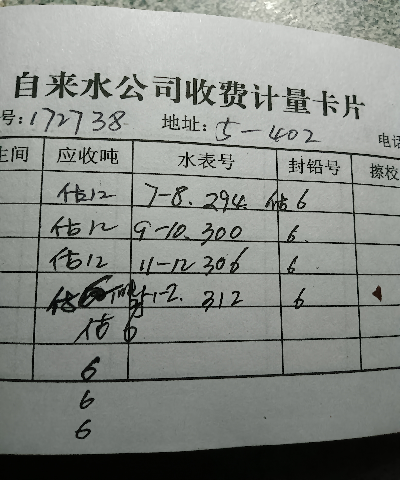 自来水公司收费计量卡片
号:172738 地址:5-402 电话
生间 应收吨 水表号 封铅号 擦校
估12 7-8. 294. 估6
估12 9-10. 300 6.
估12 11-12 306 6
估6 1-2. 312 6
估 6
6
6
6